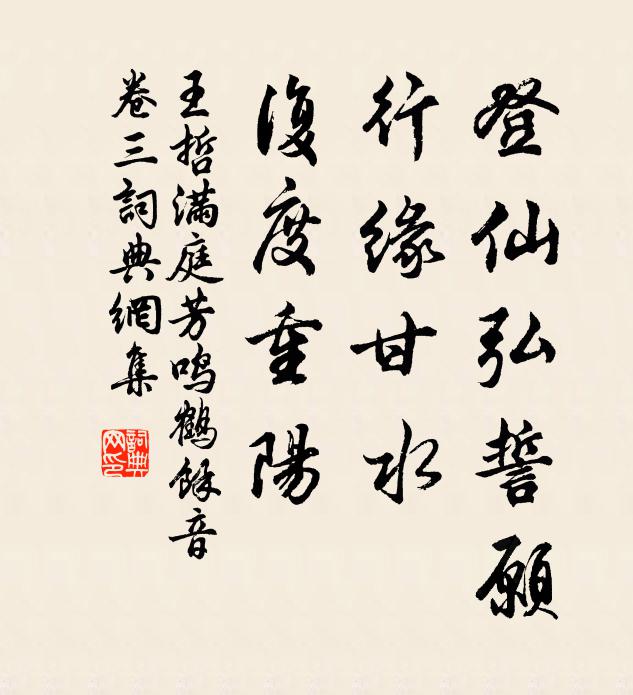 登仙弘誓願
行緣甘水
復度重陽
王哲滿庭芳鳴鶴餘音
卷三詞典網集
詞典網印